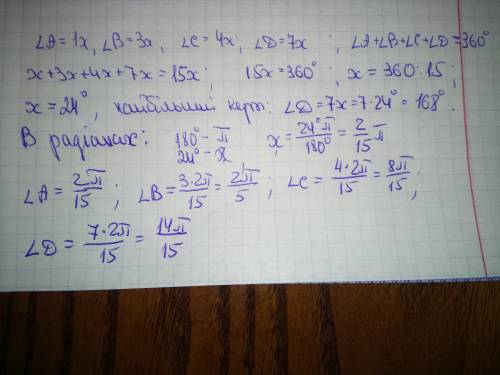 ∠A = 1x, ∠B = 3x, ∠C = 4x, ∠D = 7x ; ∠A+∠B+∠C+∠D = 360°
x+3x+4x+7x = 15x ; 15x = 360° ; x = 360 : 15 ;
x = 24°, найбільший кут: ∠D = 7x = 7·24° = 168°.
В радіанах: 180° - π x = 24°π/180° = 2/15 π
24° - x
∠A = 2π/15 ; ∠B = 3·2π/15 = 2π/5 ; ∠C = 4·2π/15 = 8π/15 ;
∠D = 7·2π/15 = 14π/15